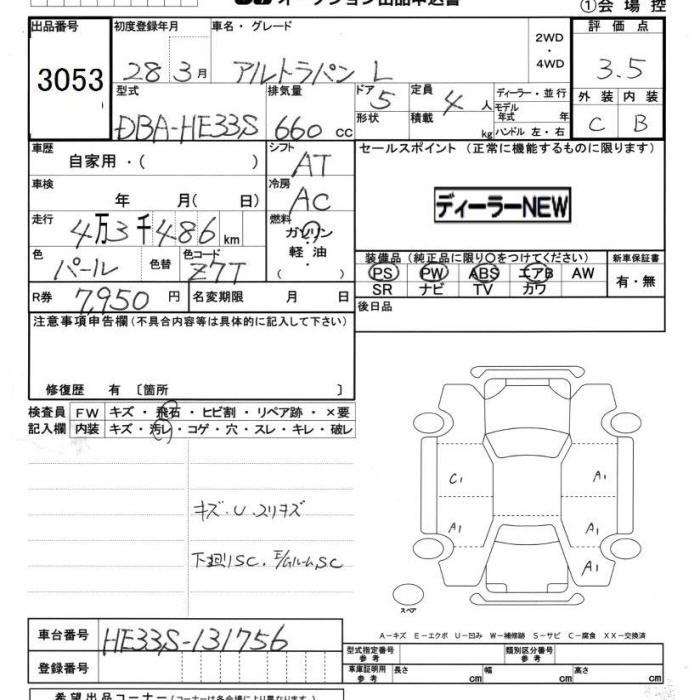 オークション出品申込書
①会場控
出品番号
3053
初度登録年月
28年3月
車名・グレード
アルトラパン L
2WD
・
4WD
評価点
3.5
外装 内装
C B
型式
DBA-HE33S
排気量
660 cc
ドア
5
形状
定員
4人
積載
kg
ディーラー・並行
モデル
年式 年
ハンドル 左・右
車歴
自家用・( )
シフト
AT
セールスポイント(正常に機能するものに限ります)
ディーラーNEW
車検
年 月( 日)
冷房
AC
走行
4万3千486km
燃料
ガソリン
軽・油
( )
色
パール
色替
色コード
Z7T
装備品(純正品に限り○をつけてください)
PS PW ABS エアB AW
SR ナビ TV カワ
新車保証書
有・無
R券
7,950円
名変期限 月 日
後日品
注意事項申告欄(不具合内容等は具体的に記入して下さい)
修復歴 有 〔箇所 〕
検査員
記入欄
FW キズ・飛石・ヒビ割・リペア跡・×要
内装 キズ・汚レ・コゲ・穴・スレ・キレ・破レ
キズ・U・スリキズ
下廻りSC・E/ルームSC
C1
A1
A1
A1
A1
スペア
A-キズ E-エクボ U-凹み W-補修跡 S-サビ C-腐食 XX-交換済
車台番号
HE33S-131756
登録番号
型式指定番号
参考
類別区分番号
参考
車庫証明用
参考
長さ cm
幅 cm
高さ cm
希望出品コーナー(コーナーは各会場により異なります)